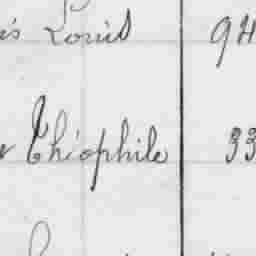 Louis 94
Théophile 33